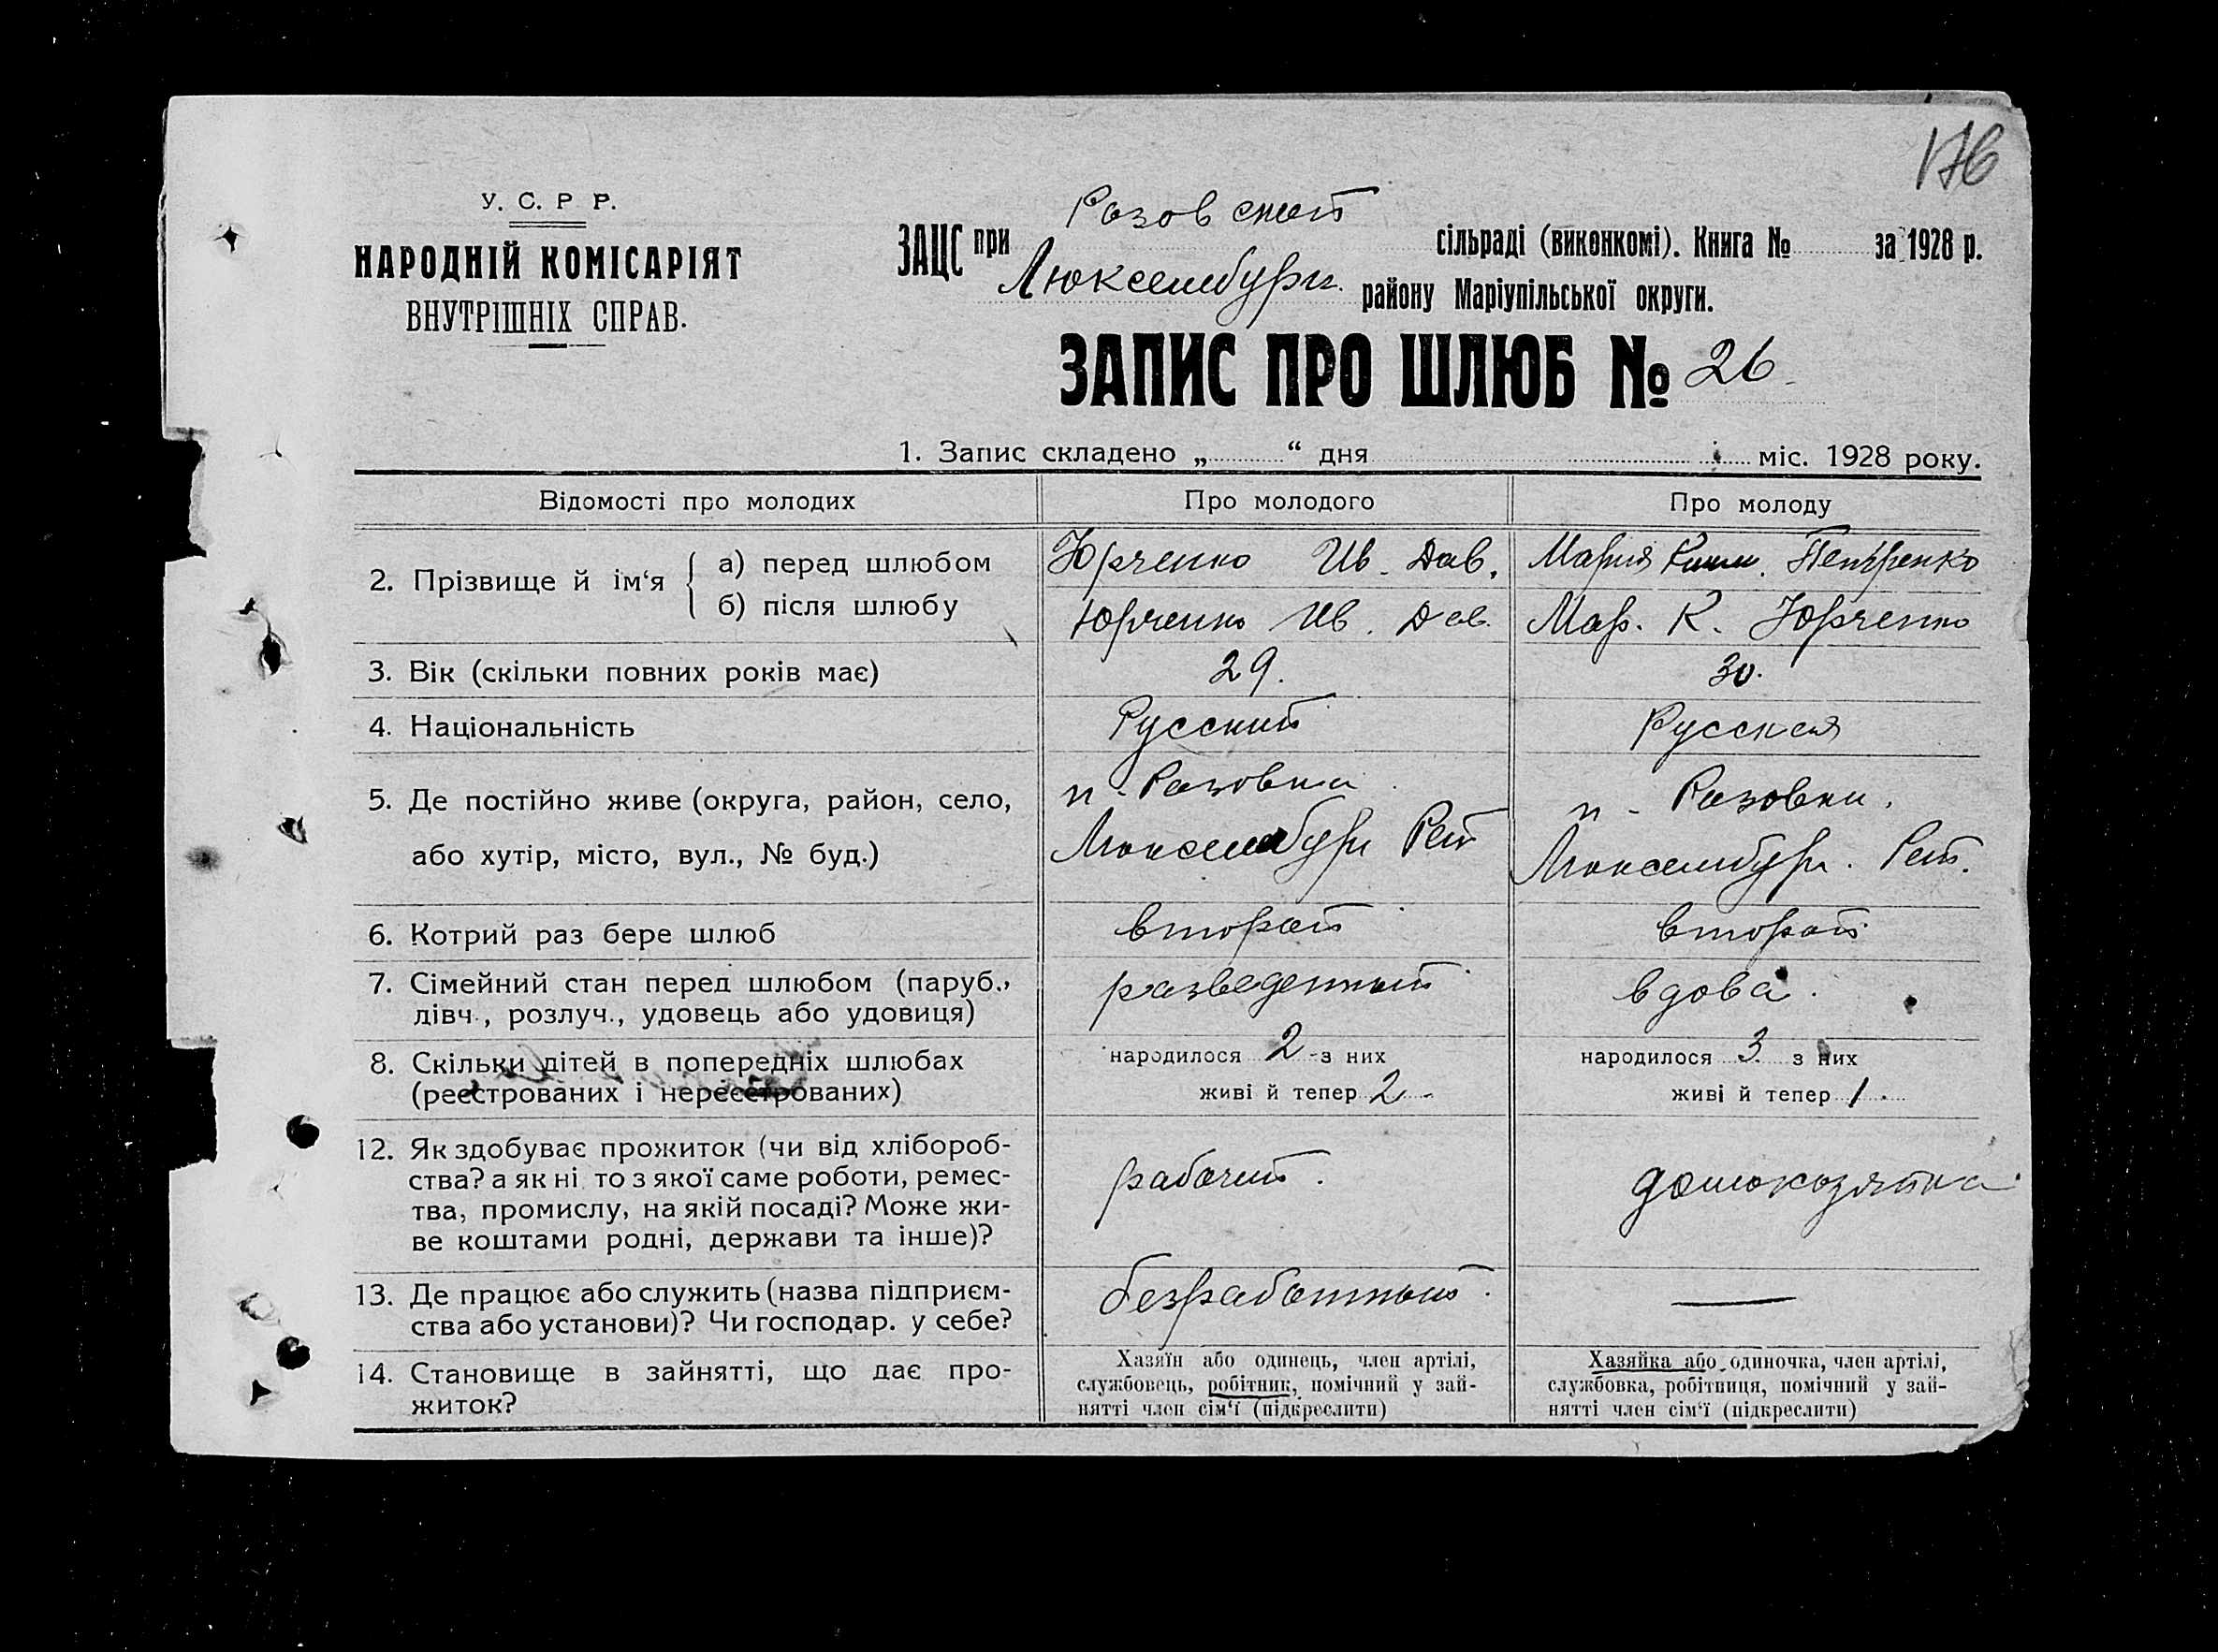 176
У. С. Р Р.
НАРОДНІЙ КОМІСАРІЯТ
ВНУТРІШНІХ СПРАВ.
Розовской
ЗАЦС при сільраді (виконкомі). Книга № за 1928 р.
Люксембург. району Маріупільської округи.
ЗАПИС ПРО ШЛЮБ № 26
1. Запис складено „ “ дня міс. 1928 року.
Відомості про молодих Про молодого Про молоду
2. Прізвище й ім‘я
а) перед шлюбом Юрченко Ив. Дав. Мария Петренко
б) після шлюбу Юрченко Ив. Дав. Мар. К. Юрченко
3. Вік (скільки повних років має) 29. 30.
4. Національність Русский Русская
5. Де постійно живе (округа, район, село, п. Розовка п. Розовка.
або хутір, місто, вул., № буд.) Люксембург Люксембург.
6. Котрий раз бере шлюб второй второй
7. Сімейний стан перед шлюбом (паруб., разведенный вдова.
дівч., розлуч., удовець або удовиця)
8. Скільки дітей в попередніх шлюбах народилося 2 з них народилося 3 з них
(реєстрованих і нереєстрованих) живі й тепер 2 живі й тепер 1
12. Як здобуває прожиток (чи від хлібороб-
ства? а як ні то з якої саме роботи, ремес- рабочий. домохозяйка
тва, промислу, на якій посаді? Може жи-
ве коштами родні, держави та інше)?
13. Де працює або служить (назва підприєм- безработный. —
ства або установи)? Чи господар. у себе?
14. Становище в зайнятті, що дає про-
житок?
Хазяїн або одинець, член артілі,
службовець, робітник, помічний у зай-
нятті член сім‘ї (підкреслити)
Хазяйка або одиночка, член артілі,
службовка, робітниця, помічний у зай-
нятті член сім‘ї (підкреслити)